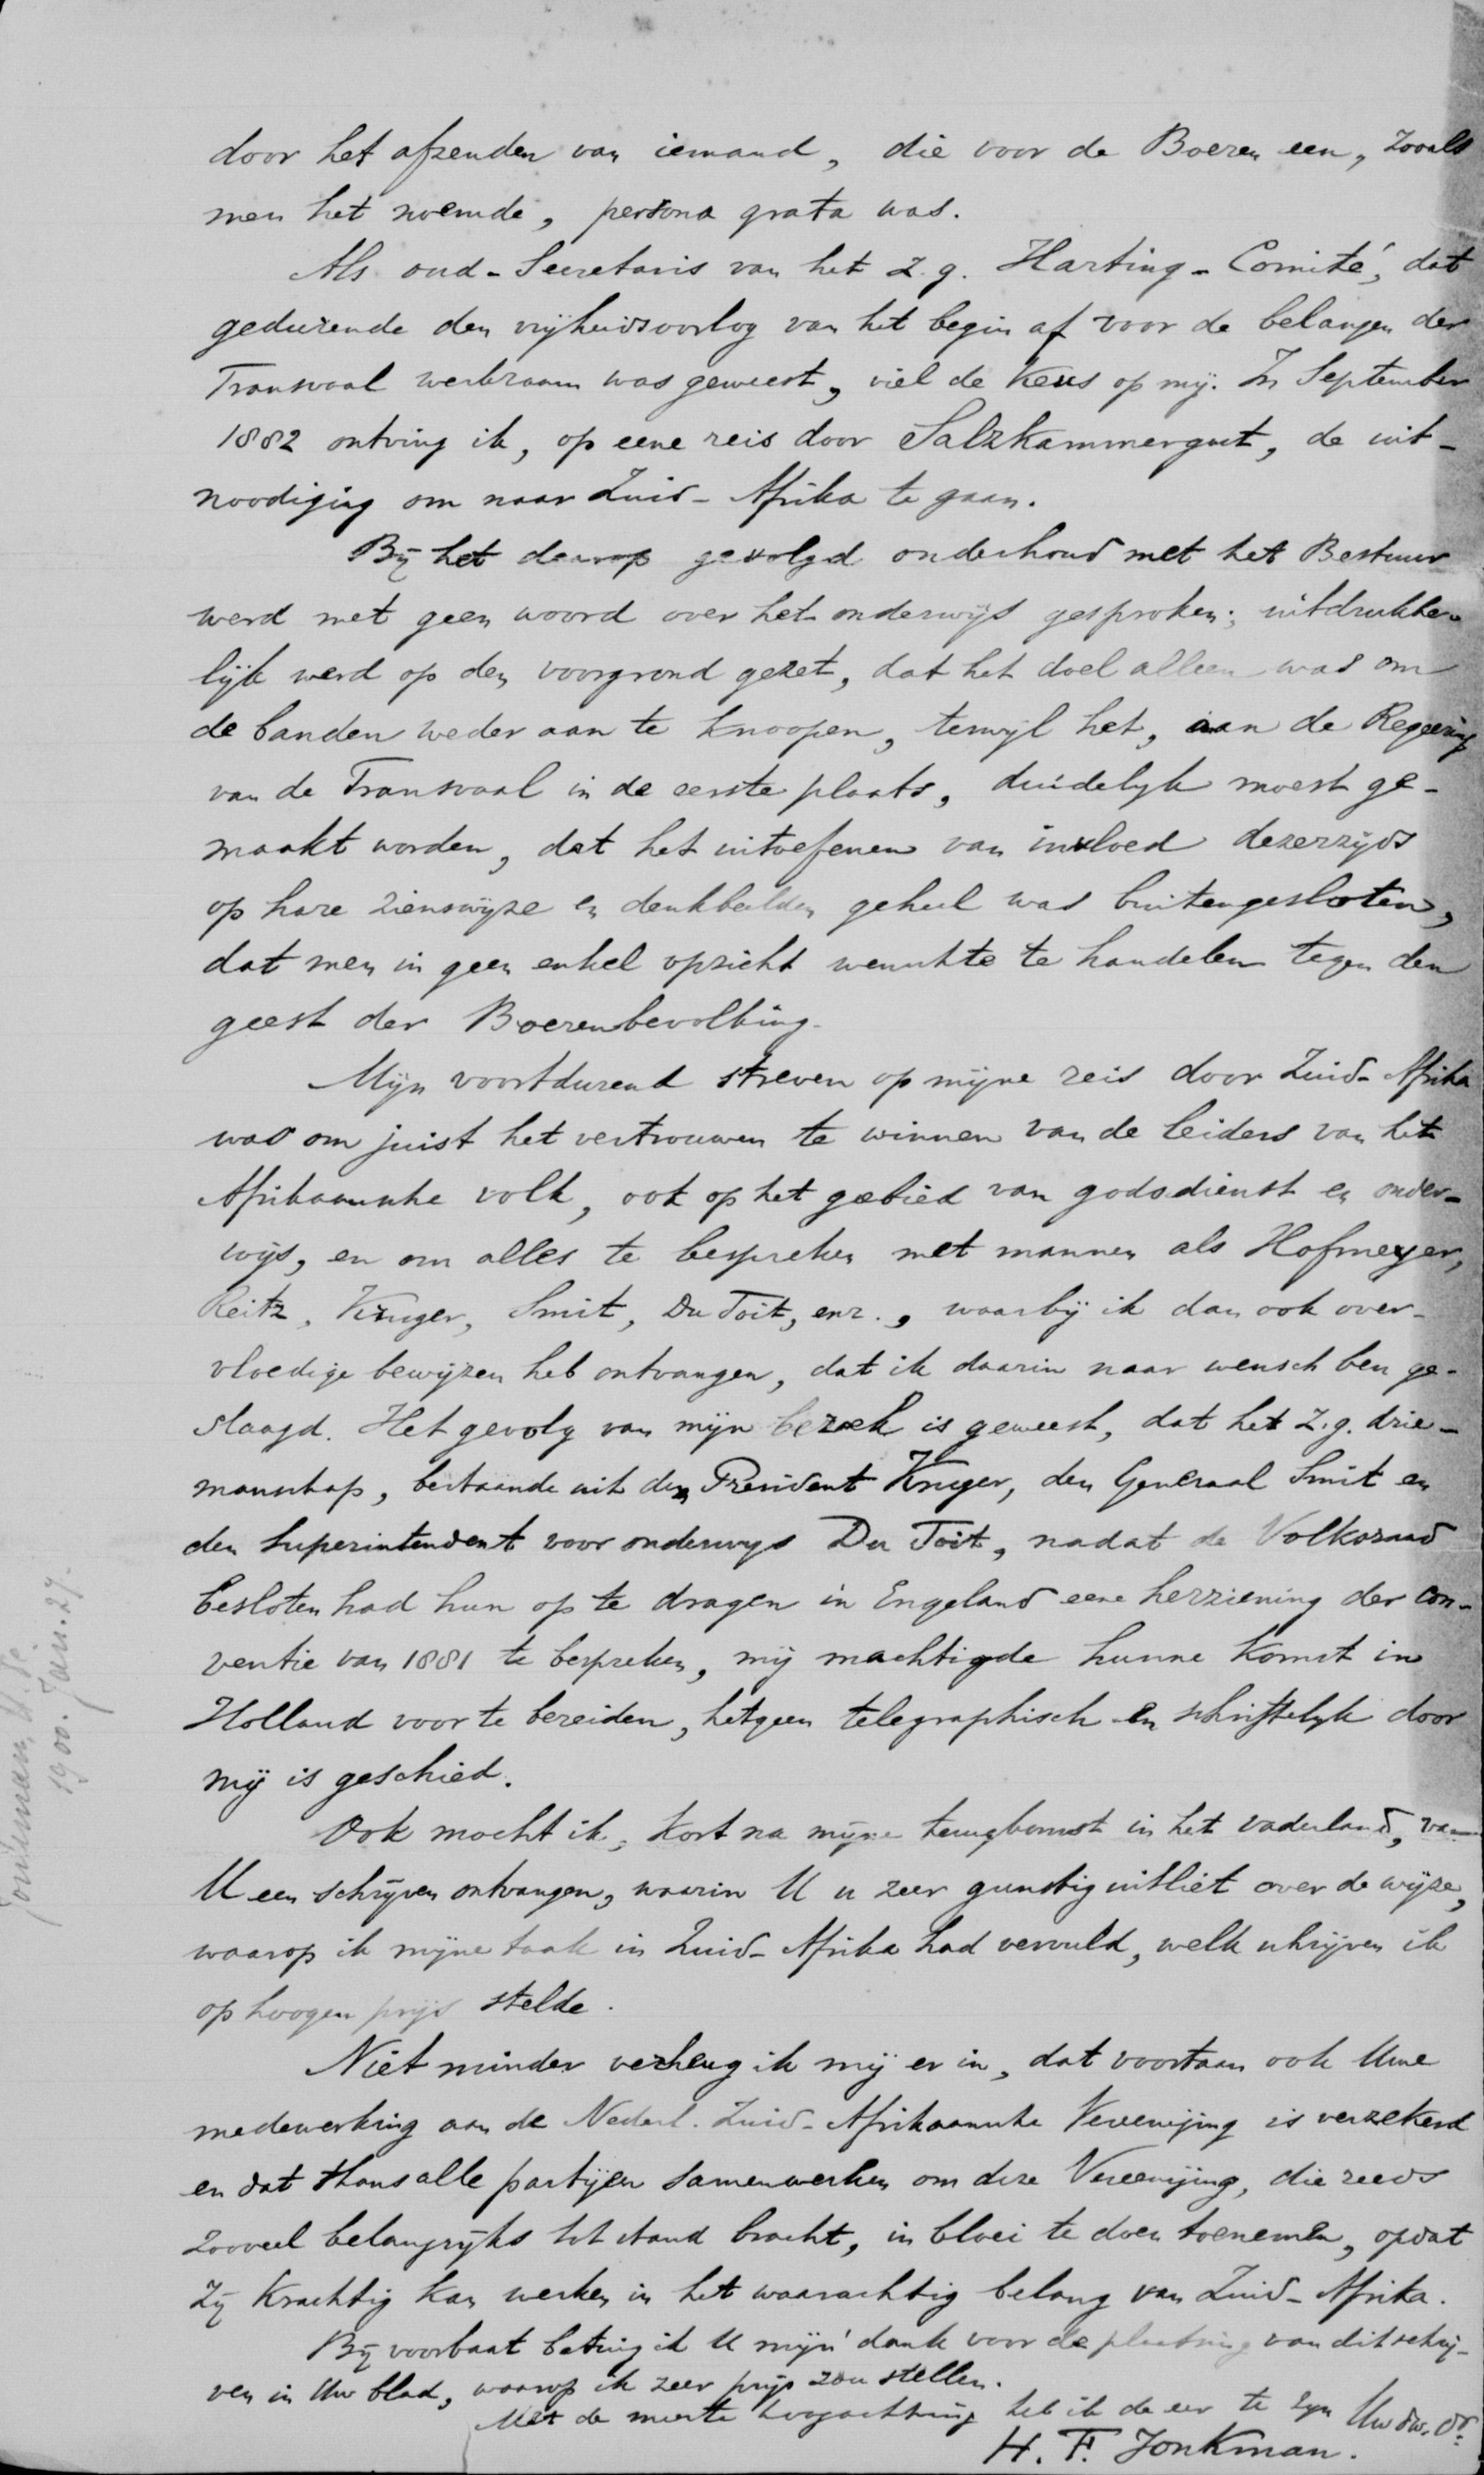 door het afzenden van iemand, die voor de Boeren een, zooals
men het noemde, persona grata was.
Als oud-Secretaris van het z.g. Harting-Comité, dat
gedurende den vrijheidsoorlog van het begin af voor de belangen der
Transvaal werkzaam was geweest, viel de Keus op mij. In September
1882 ontving ik, op eene reis door Salzkammergut, de uit-
noodiging om naar Zuid-Afrika te gaan.
Bij het daarop gevolgd onderhoud met het Bestuur
werd met geen woord over het onderwijs gesproken; uitdrukke-
lijk werd op den voorgrond gezet, dat het doel alleen was om
de banden weder aan te knoopen, terwijl het, aan de Regeering
van de Transvaal in de eerste plaats, duidelijk moest ge-
maakt worden, dat het uitoefenen van invloed dezerzijds
op hare zienswijze en denkbeelden geheel was buitengesloten,
dat men in geen enkel opzicht wenschte te handelen tegen den
geest der Boerenbevolking.
Mijn voortdurend streven op mijne reis door Zuid-Afrika
was om juist het vertrouwen te winnen van de leiders van het
Afrikaansche volk, ook op het gebied van godsdienst en onder-
wijs, en om alles te bespreken met mannen als Hofmeyer,
Reitz, Kruger, Smit, Du Toit, enz., waarbij ik dan ook over-
vloedige bewijzen heb ontvangen, dat ik daarin naar wensch ben ge-
slaagd. Het gevolg van mijn bezoek is geweest, dat het z.g. drie-
manschap, bestaande uit den President Kruger, den Generaal Smit en
den Superintendent voor onderwijs Du Toit, nadat de Volksraad
besloten had hun op te dragen in Engeland eene herziening der con-
ventie van 1881 te bespreken, mij machtigde hunne Komst in
Holland voor te bereiden, hetgeen telegraphisch en schriftelijk door
mij is geschied.
Ook mocht ik, kort na mijne terugkomst in het vaderland, van
U een schrijven ontvangen, waarin U u zeer gunstig uitliet over de wijze,
waarop ik mijne taak in Zuid-Afrika had vervuld, welk schrijven ik
op hoogen prijs stelde.
Niet minder verheug ik mij er in, dat voortaan ook Uwe
medewerking aan de Nederl. Zuid-Afrikaansche Vereeniging is verzekerd
en dat thans alle partijen samenwerken om deze Vereeniging, die reeds
zooveel belangrijks tot stand bracht, in bloei te doen toenemen, opdat
zij Krachtig kan werken in het waarachtig belang van Zuid-Afrika.
Bij voorbaat betuig ik U mijn dank voor de plaatsing van dit schrij-
ven in Uw blad, waarop ik zeer prijs zou stellen.
Met de meeste hoogachting heb ik de eer te zijn Uw dw. dr.
H. F. Jonkman.
1900. Jan. 27.